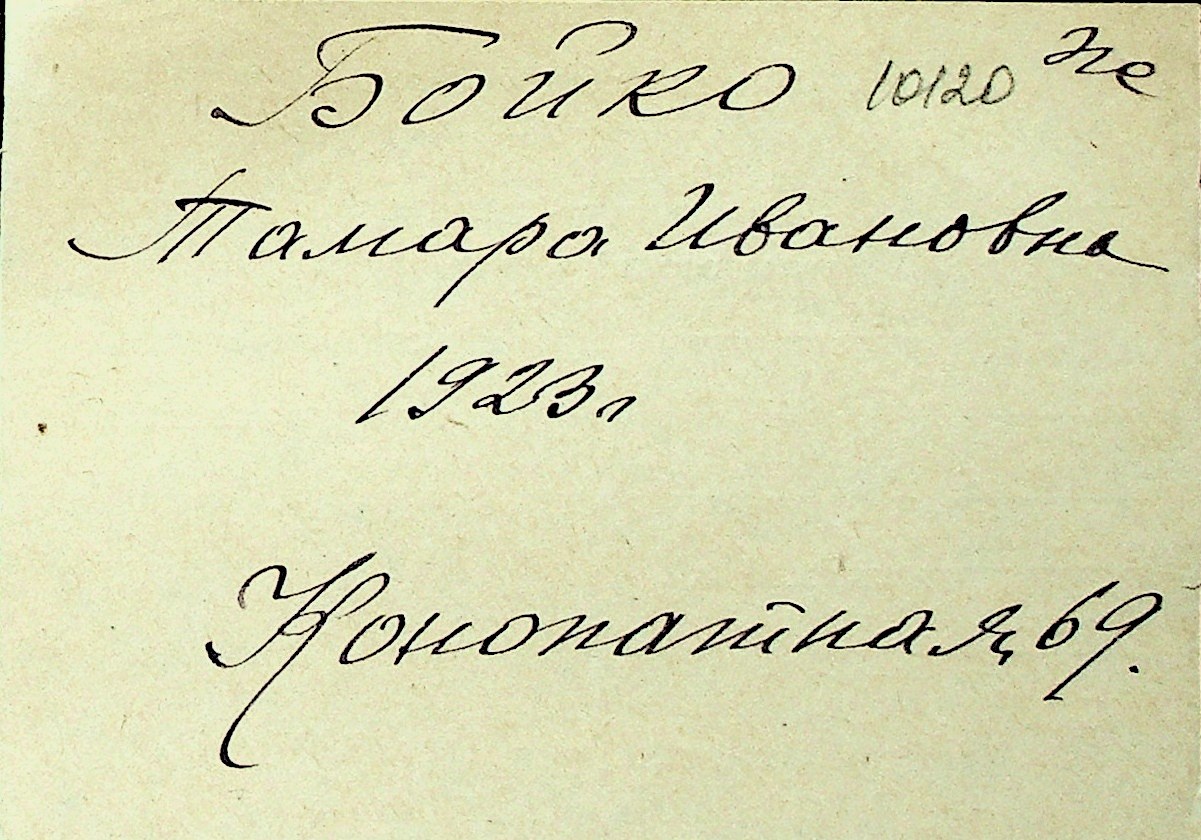 Бойко 10120 не
Тамара Ивановна
1923 г
Конопатная, 69.